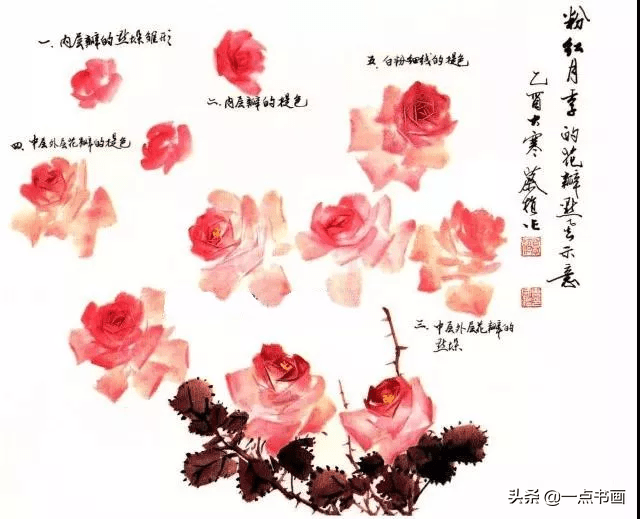 粉红月季的花瓣點示意
乙酉大寒
一、内层瓣的點垛雏形
二、内层瓣的提色
五、白粉细线的提色
四、中层外层花瓣的提色
三、中层外层花瓣的
點垛
头条 @一点书画